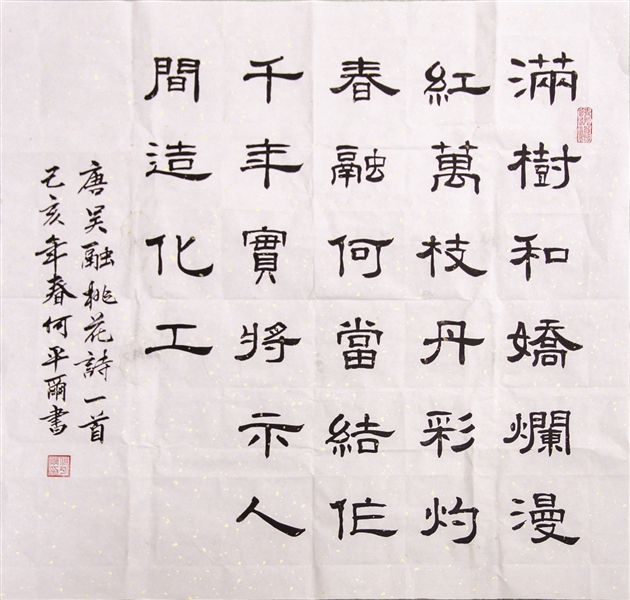 滿樹和嬌爛漫
紅萬枝丹彩灼
春融何當結作
千年實將示人
間造化工
唐吳融桃花詩一首
己亥年春何平爾書